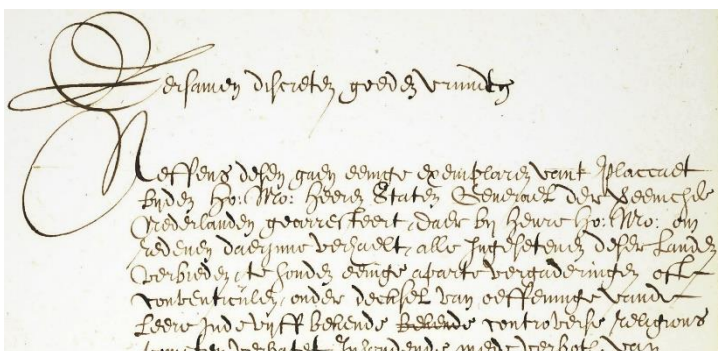 Eersamen discreten goede vrunden
Neffens desen gaen eenige exemplaren vant Placcaet
byden Ho: Mo: Heeren Staten Generael der Vereenichde
Nederlanden gearresteert, daer by heure Ho: Mo: om
redenen daerjnne verhaelt, alle Jngesetenen deser Landen
verbieden, te houden eenige aparte vergaderingen ofte
conventiculen, onder decksel van oeffeninge vande
Leere Jnde vyff bekende bekende controverse religions
poincten vervatet, mede verbot van